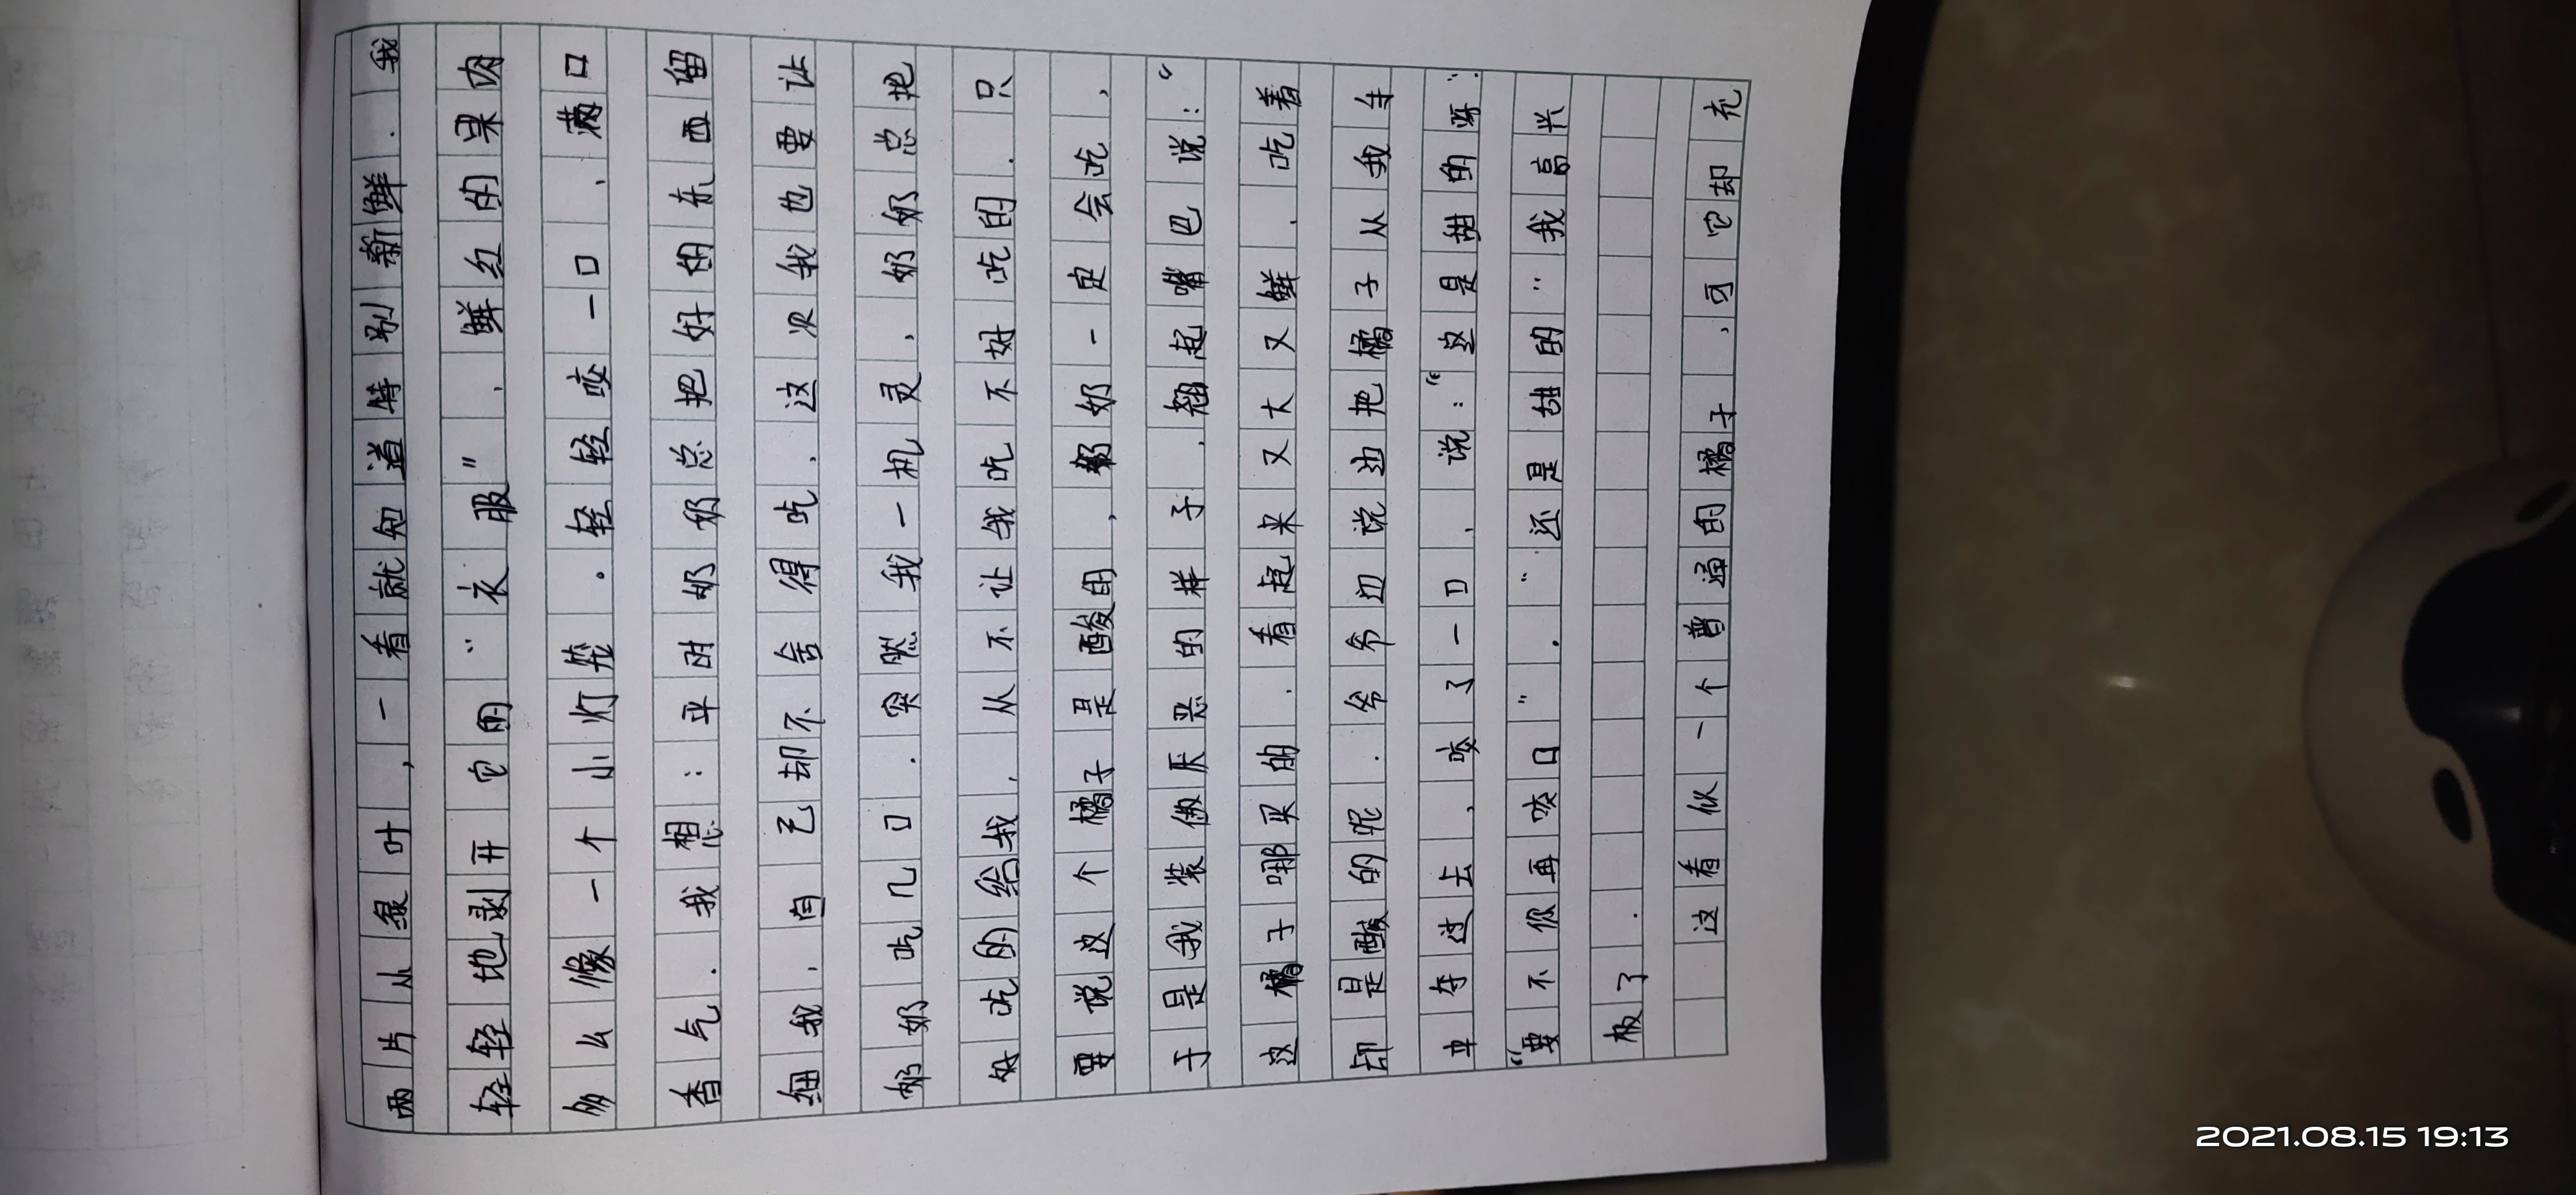 两片从绿叶，一看就知道特别新鲜．我
轻轻地剥开它的“衣服”．鲜红的果肉
多么像一个小灯笼。轻轻咬一口、满口
香气．我想：平时奶奶总把好的东西留
给我，自己却不舍得吃，这次我也要让
奶奶吃几口．突然我一机灵，奶奶总把
好吃的给我，从不让我吃不好吃的．只
要说这个橘子是酸的，奶奶一定会吃，
于是我装做厌恶的样子．翘起嘴巴说：“
这橘子哪买的．看起来又大又鲜．吃着
却是酸的呢．爷爷边说边把橘子从我手
中夺过去，咬了一口，说：“这是甜的呀”．
“要不你再咬口”．“还是甜的”我高兴
极了．
这看似一个普通的橘子，可它却充
2021.08.15 19:13